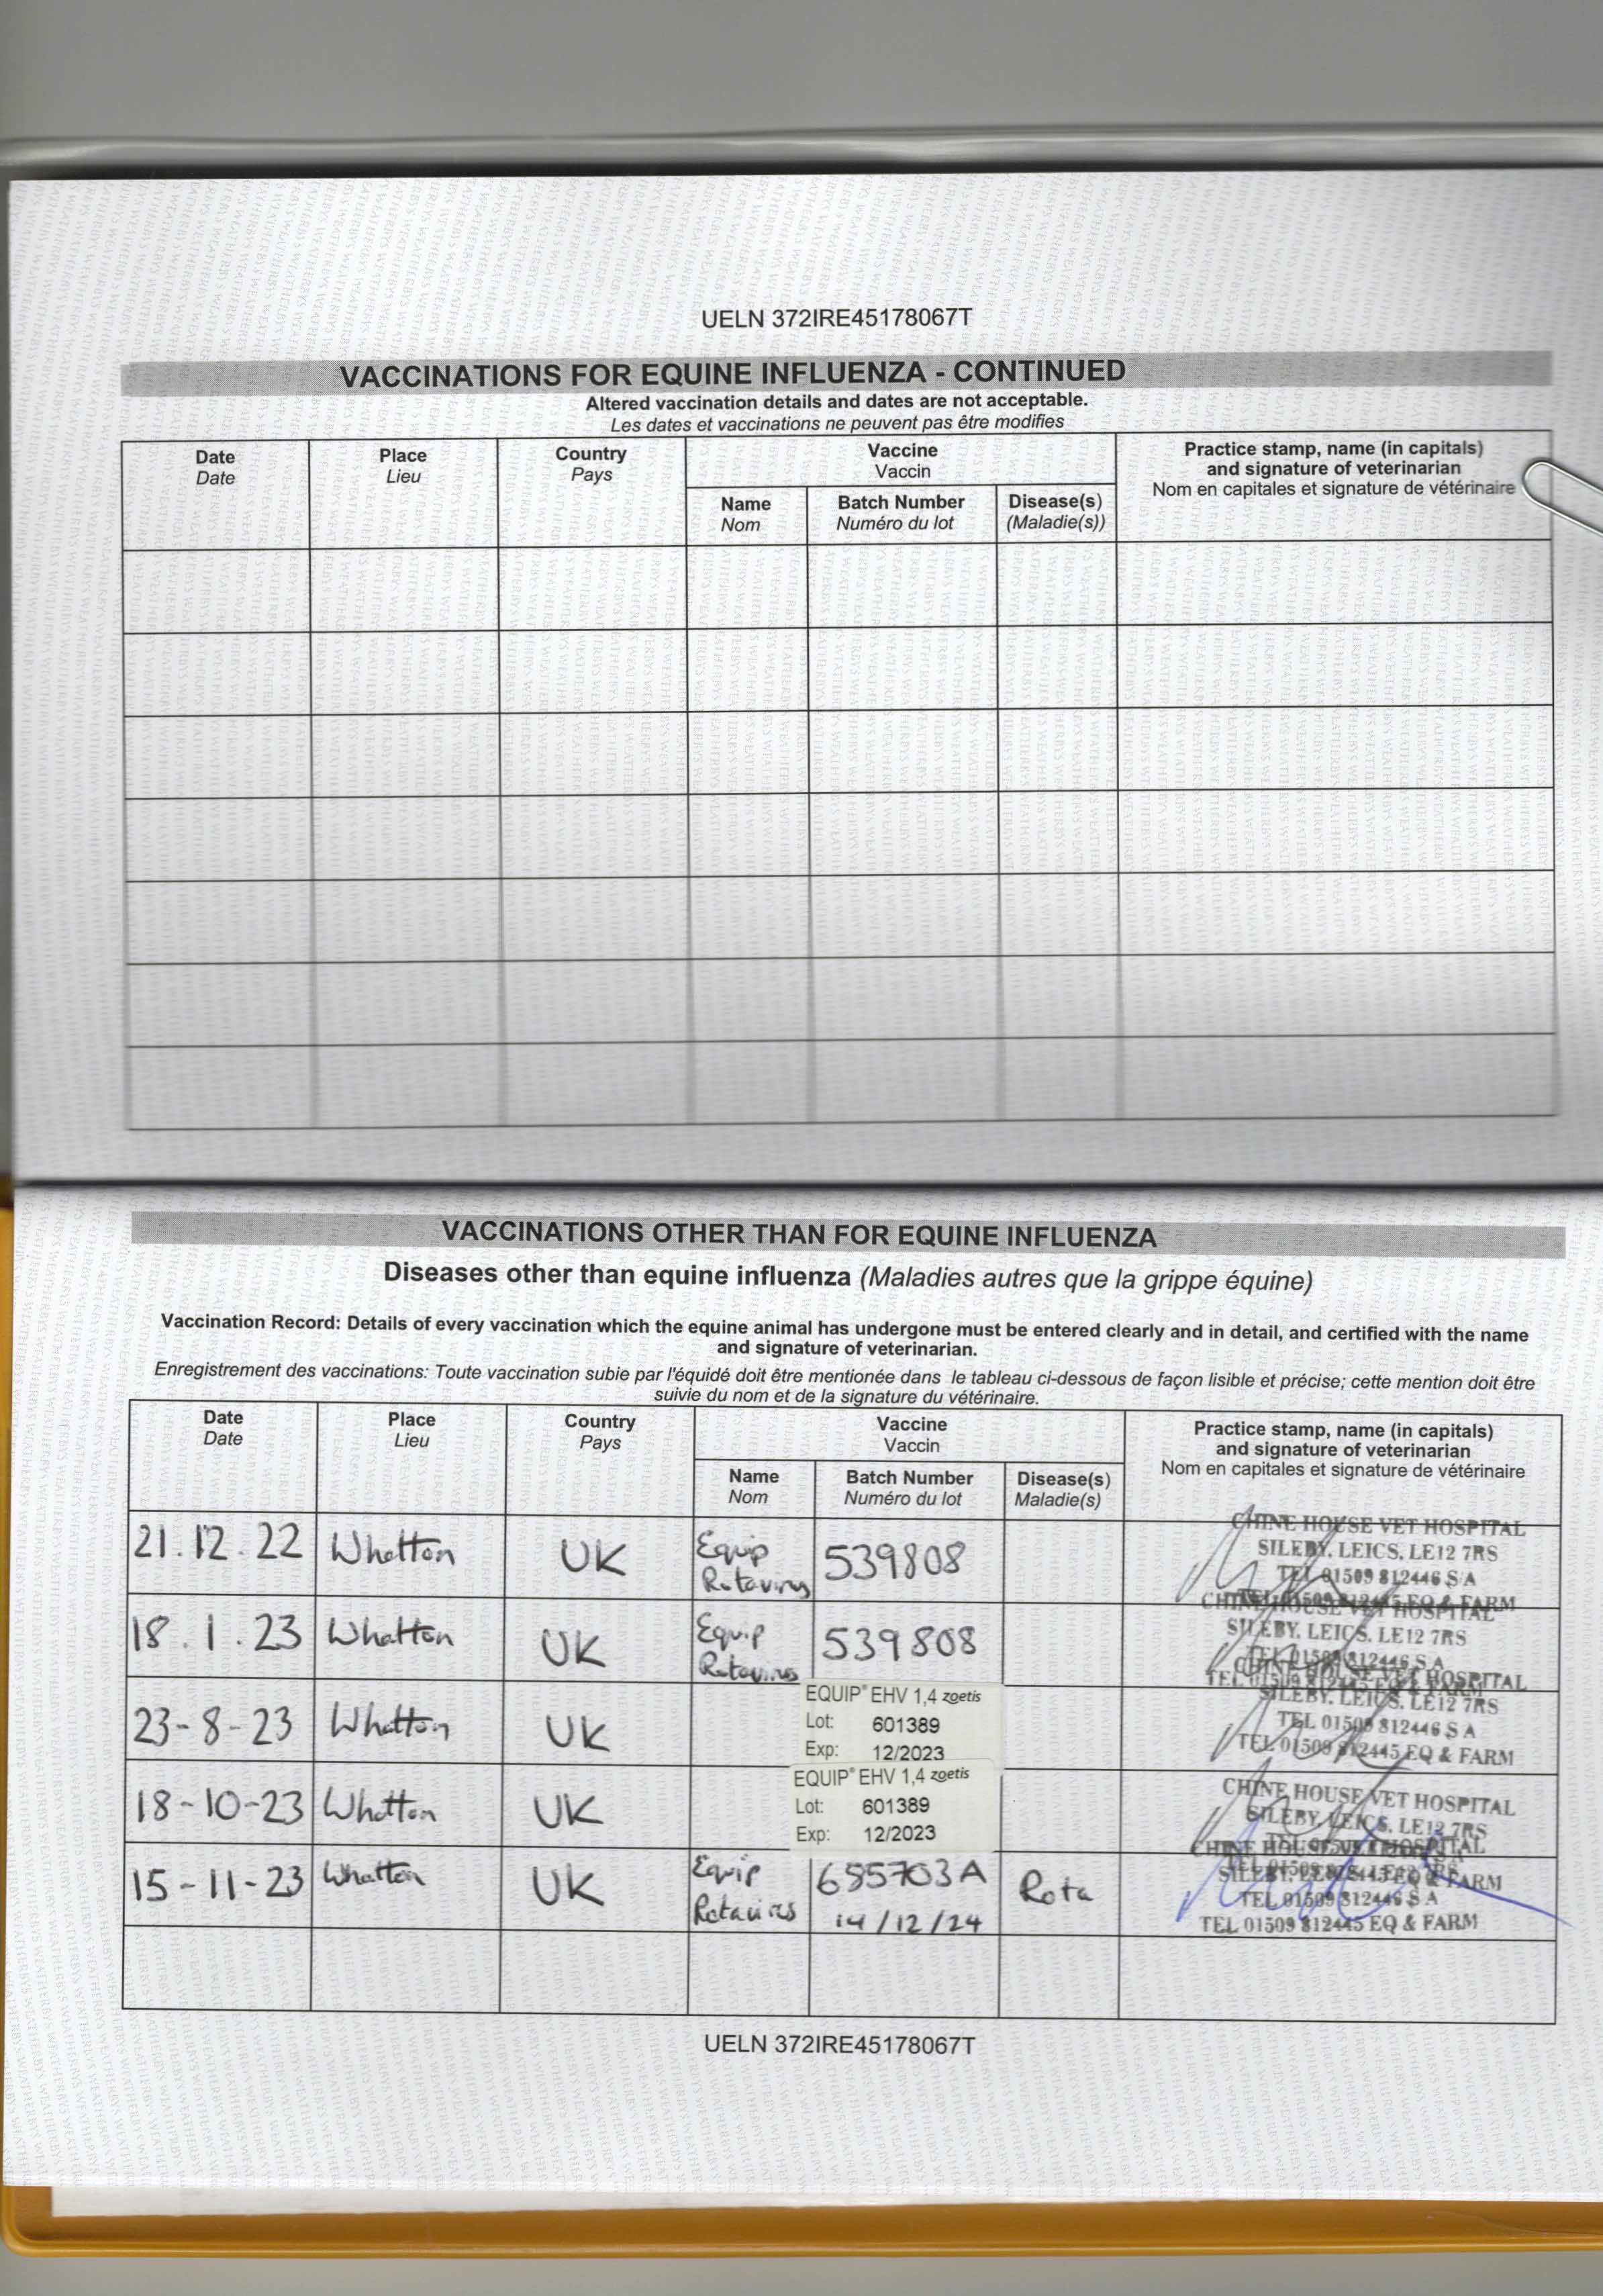 UELN 372IRE45178067T
VACCINATIONS FOR EQUINE INFLUENZA - CONTINUED
Altered vaccination details and dates are not acceptable.
Les dates et vaccinations ne peuvent pas être modifies
Date
Date
Place
Lieu
Country
Pays
Vaccine
Vaccin
Name
Nom
Batch Number
Numéro du lot
Disease(s)
(Maladie(s))
Practice stamp, name (in capitals)
and signature of veterinarian
Nom en capitales et signature de vétérinaire
VACCINATIONS OTHER THAN FOR EQUINE INFLUENZA
Diseases other than equine influenza (Maladies autres que la grippe équine)
Vaccination Record: Details of every vaccination which the equine animal has undergone must be entered clearly and in detail, and certified with the name
and signature of veterinarian.
Enregistrement des vaccinations: Toute vaccination subie par l'équidé doit être mentionée dans le tableau ci-dessous de façon lisible et précise; cette mention doit être
suivie du nom et de la signature du vétérinaire.
Date
Date
Place
Lieu
Country
Pays
Vaccine
Vaccin
Name
Nom
Batch Number
Numéro du lot
Disease(s)
Maladie(s)
Practice stamp, name (in capitals)
and signature of veterinarian
Nom en capitales et signature de vétérinaire
21.12.22 Whatton UK Equip
Rotavirus
539808
CHINE HOUSE VET HOSPITAL
SILEBY, LEICS, LE12 7RS
TEL 01509 812446 S A
TEL 01509 812445 EQ & FARM
18.1.23 Whatton UK Equip
Rotavirus
539808
CHINE HOUSE VET HOSPITAL
SILEBY, LEICS. LE12 7RS
TEL 01509 812446 S A
TEL 01509 812445 EQ & FARM
23-8-23 Whatton UK
EQUIP® EHV 1,4 zoetis
Lot: 601389
Exp: 12/2023
CHINE HOUSE VET HOSPITAL
SILEBY, LEICS, LE12 7RS
TEL 01509 812446 S A
TEL 01509 812445 EQ & FARM
18-10-23 Whatton UK
EQUIP® EHV 1,4 zoetis
Lot: 601389
Exp: 12/2023
CHINE HOUSE VET HOSPITAL
SILEBY, LEICS, LE12 7RS
15-11-23 Whatton UK Equip
Rotavirus
685703A
14/12/24
Rota
CHINE HOUSE VET HOSPITAL
TEL 01509 812446 S A
TEL 01509 812445 EQ & FARM
UELN 372IRE45178067T